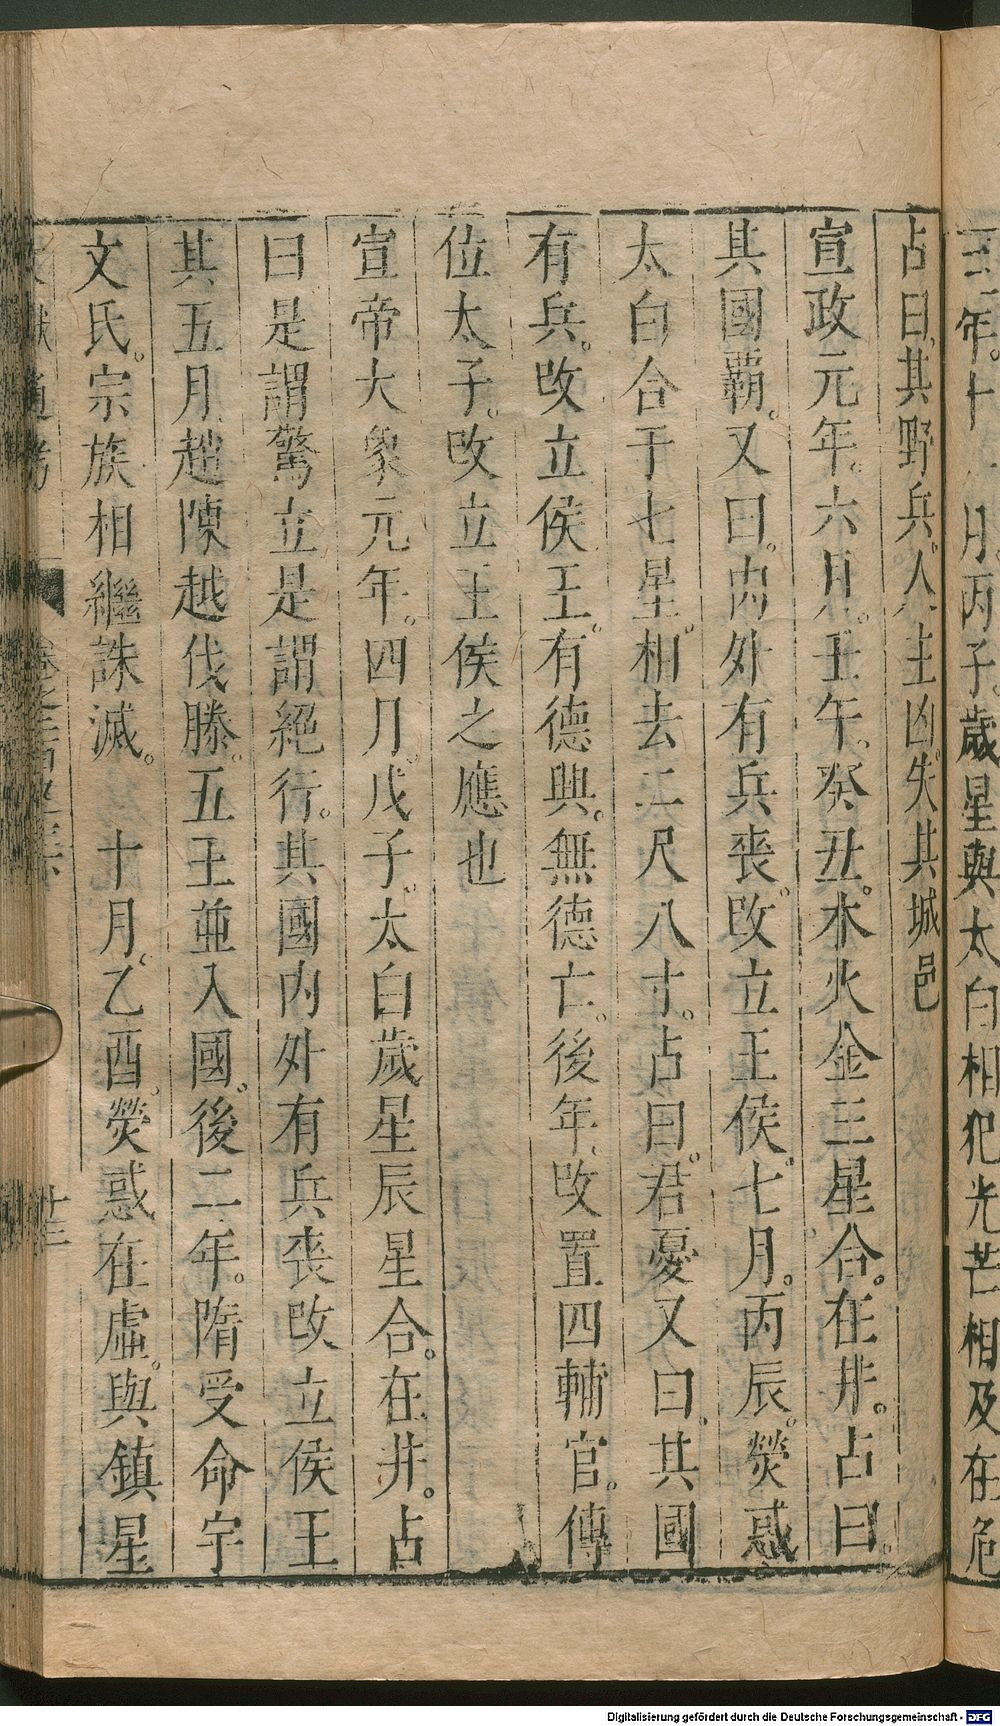 三年。十一月丙子。歲星與太白相犯光芒相及在危
占曰。其野兵。人主凶。失其城邑
宣政元年。六月。壬午。癸丑。木火金三星合。在井。占曰。
其國霸。又曰。內外有兵喪。改立王侯。七月。丙辰。熒惑
太白合于七星。相去二尺八寸。占曰。君憂又曰。其國
有兵。改立侯王。有德興。無德亡。後年。改置四輔官。傳
位太子。改立王侯之應也
宣帝大象元年。四月。戊子。太白歲星辰星合。在井。占
曰是謂驚立是謂絕行。其國內外有兵喪改立侯王
其五月趙陳越代滕。五王並入國。後二年。隋受命宇
文氏。宗族相繼誅滅。 十月。乙酉。熒惑在虛。與鎮星
獻通考 卷之二百 廿三
Digitalisierung gefördert durch die Deutsche Forschungsgemeinschaft - DFG